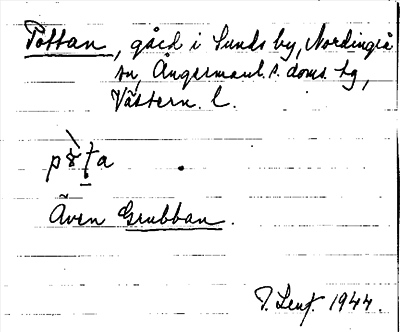 Pottan, gård i Sunds by, Nordingrå
sn, Ångermanl. s. doms. hg,
Västern. l.
Även Grubban.
1944.